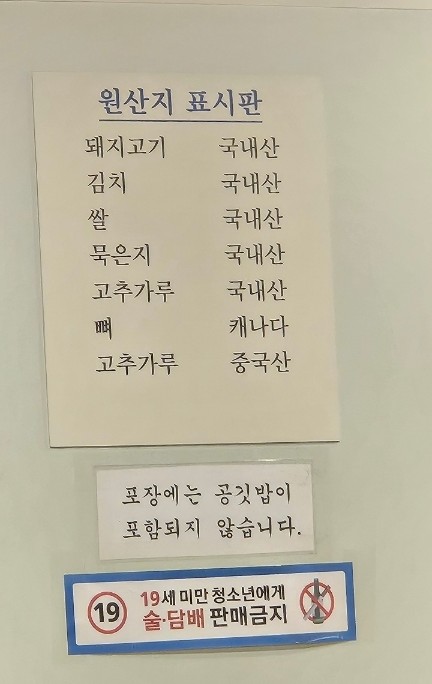 원산지 표시판
돼지고기 국내산
김치 국내산
쌀 국내산
묵은지 국내산
고추가루 국내산
뼈 캐나다
고추가루 중국산
포장에는 공깃밥이
포함되지 않습니다.
19 19세 미만 청소년에게
술·담배 판매금지